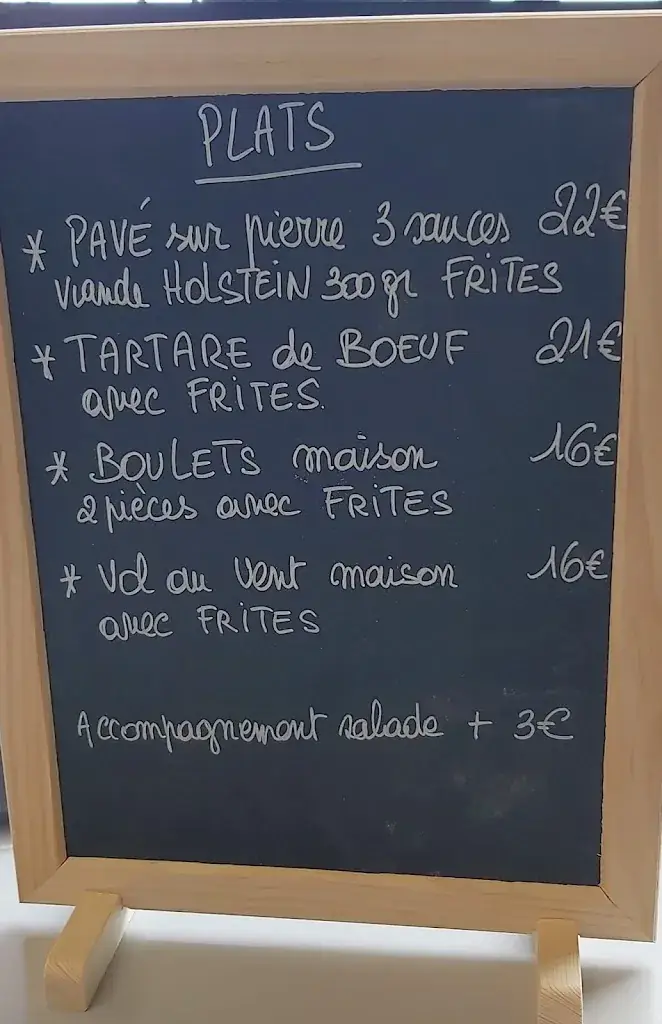 PLATS
* PAVÉ sur pierre 3 sauces 22€
viande HOLSTEIN 300gr FRITES
* TARTARE de BOEUF 21€
avec FRITES.
* BOULETS maison 16€
2 pièces avec FRITES
* Vol au Vent maison 16€
avec FRITES
Accompagnement salade + 3€